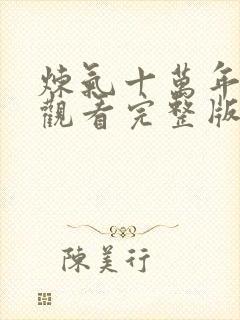 煉氣十萬年
觀看完整版
陳美行